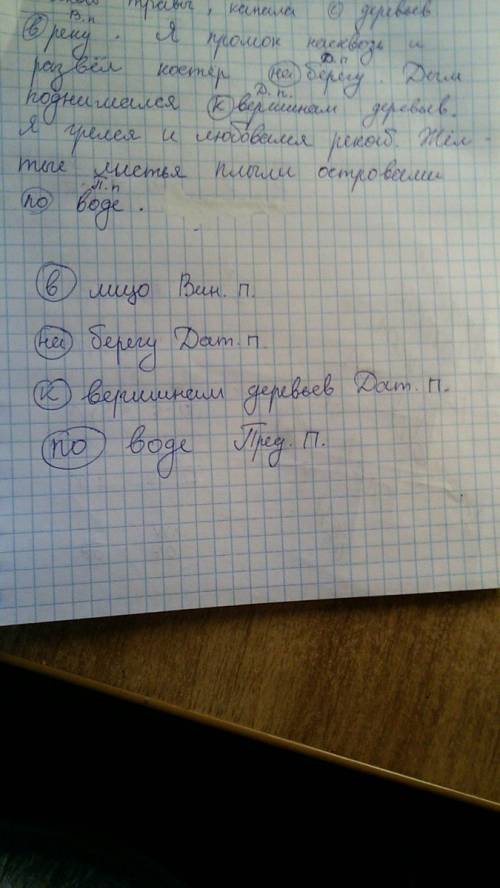 травы, капала с деревьев
В.п
в реку. Я промок насквозь и
Д.п
развёл костёр на берегу. Дым
Д.п.
поднимался к вершинам деревьев.
Я грелся и любовался рекой. Жёл-
тые листья плыли островами
П.п
по воде.
в лицо Вин. п.
на берегу Дат. п.
к вершинам деревьев Дат. п.
по воде Пред. п.